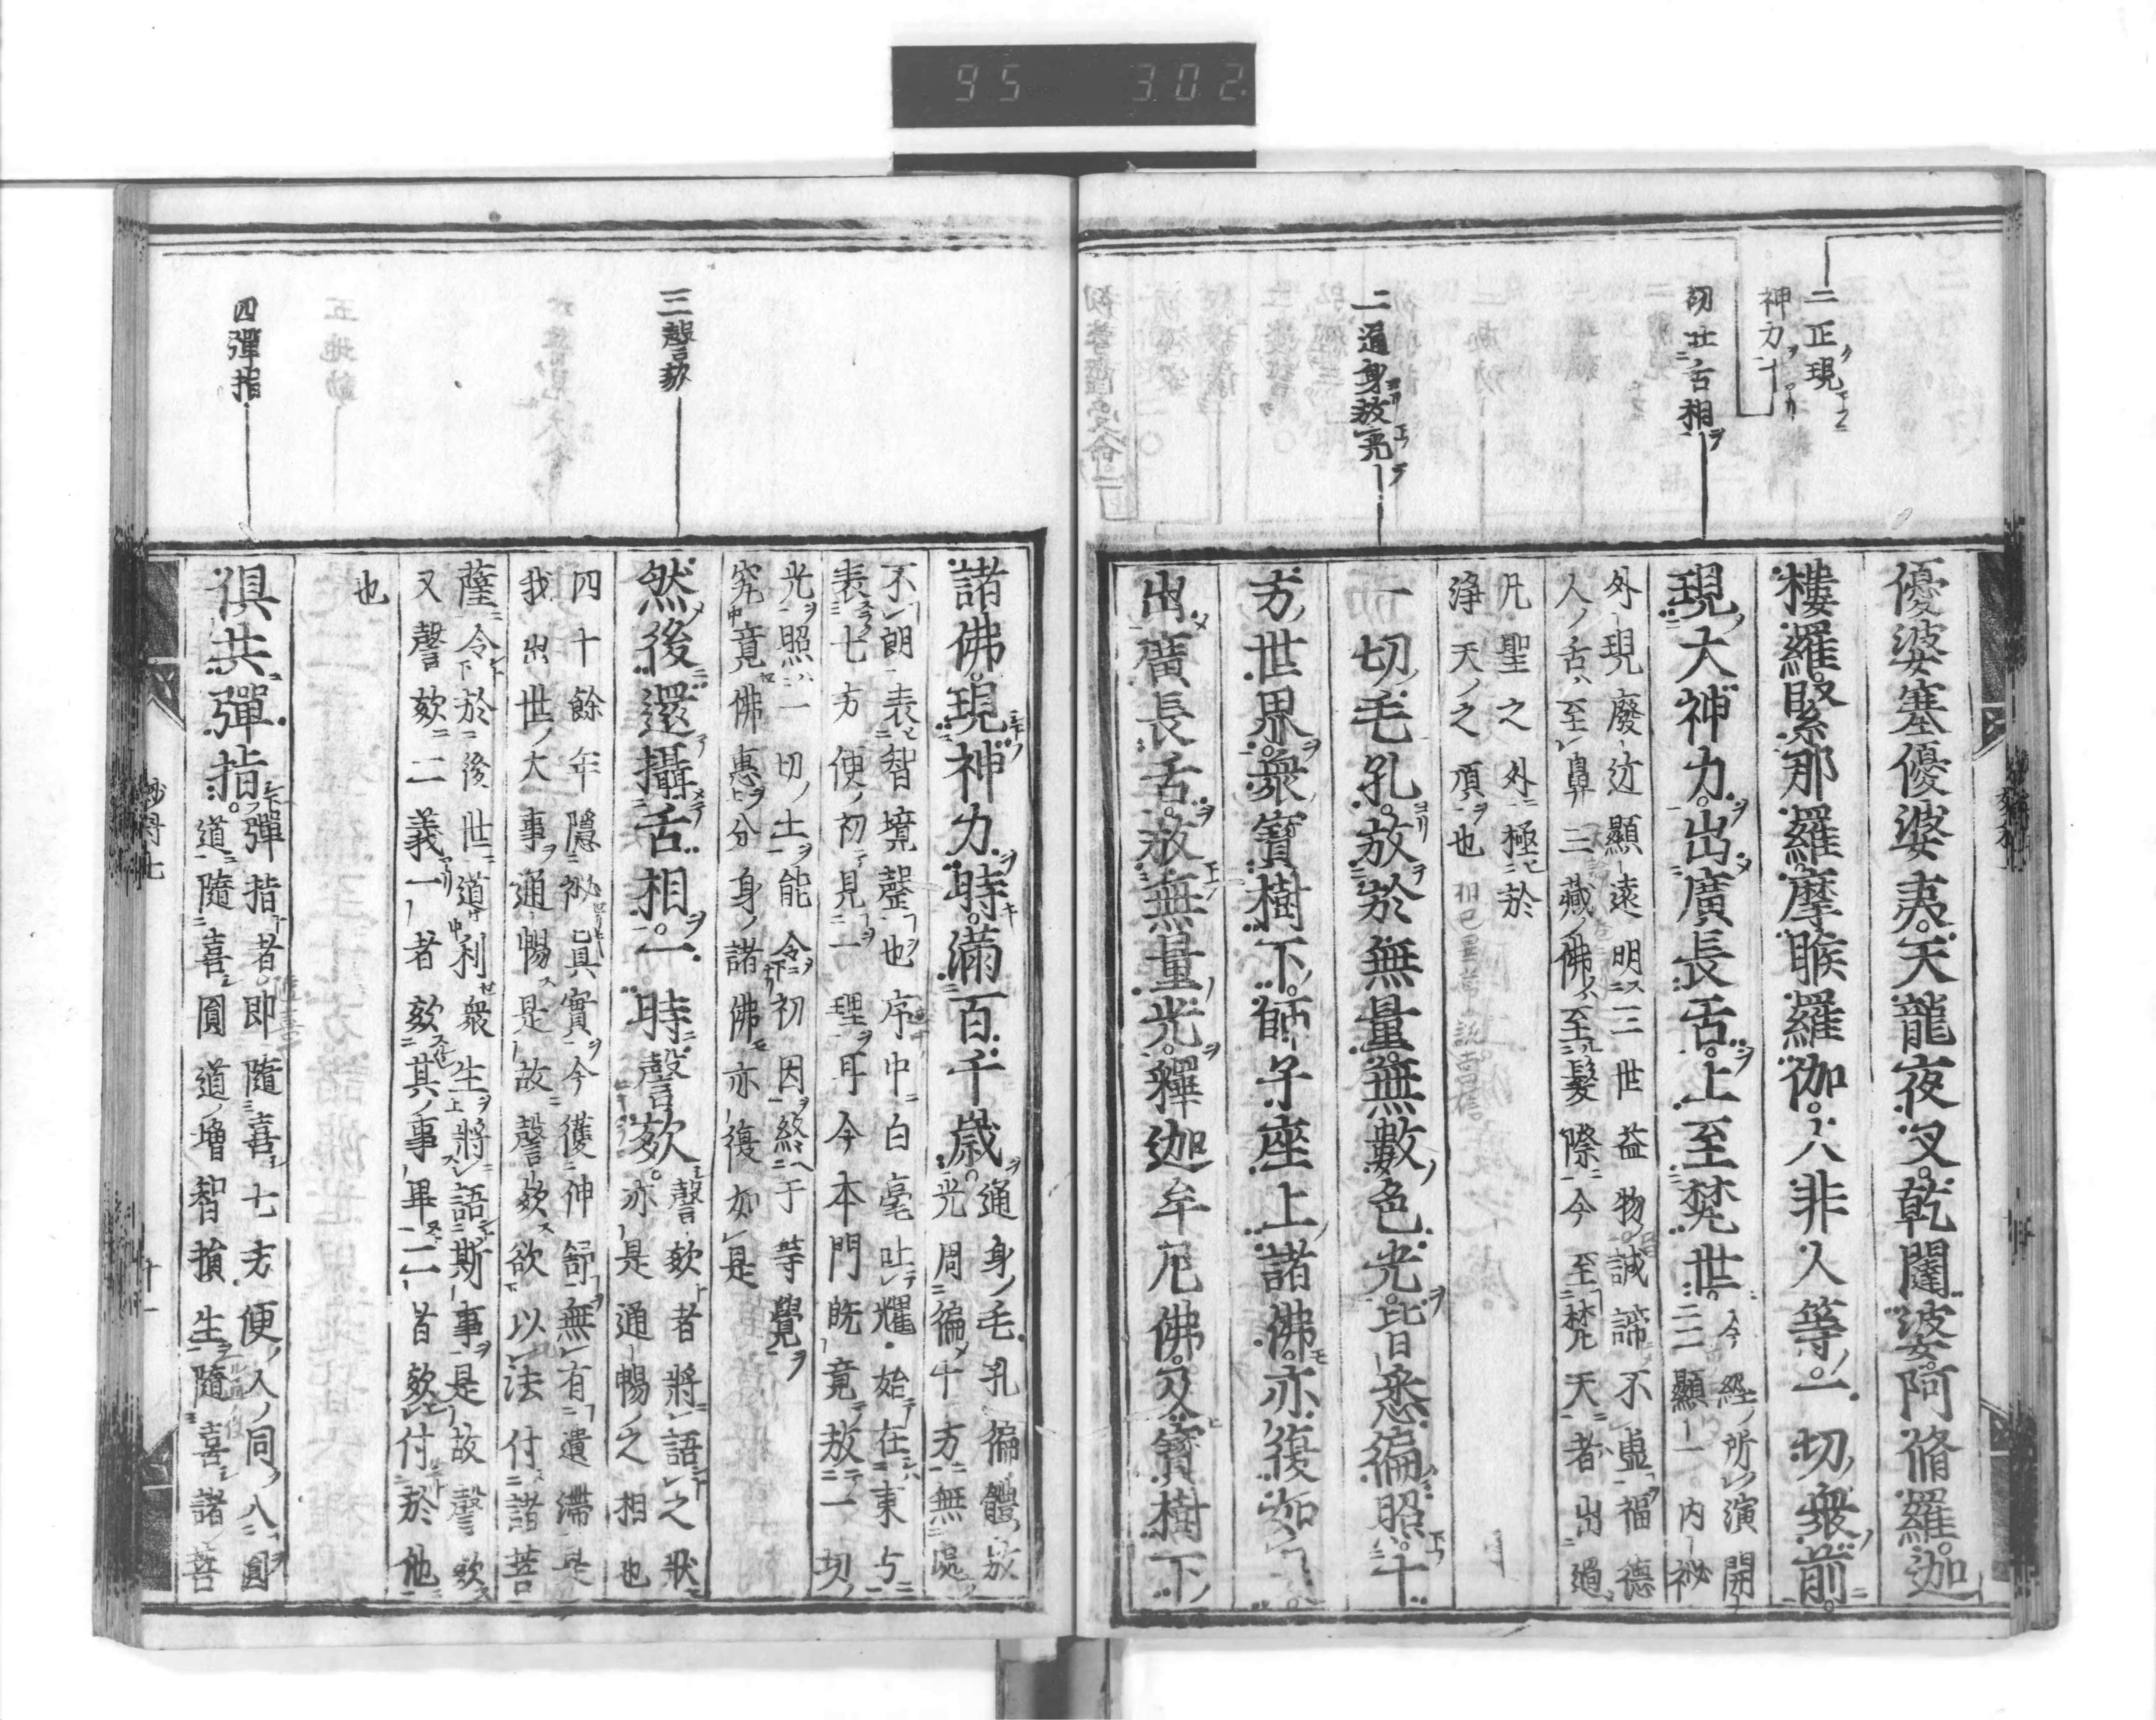 95 302
二正現
神力十
初吐舌相
二通身放光
優婆塞優婆夷天龍夜叉乾闥婆阿脩羅迦
樓羅緊那羅摩睺羅伽人非人等一切衆前
現大神力出廣長舌上至梵世今經所演開
三顯一内祕
外現廢迹顯遠明三世益物誠諦不虚福德
人舌至鼻三藏佛至髮際今至梵天者出過
凡聖之外極於
淨天之頂也
一切毛孔放於無量無數色光皆悉徧照十
方世界衆寶樹下師子座上諸佛亦復如
出廣長舌放無量光釋迦牟尼佛及寶樹下
三謦欬
四彈指
諸佛現神力時滿百千歳通身毛孔徧體放
光周徧十方無處
不朗表智境罄也序中白毫吐耀始在東与
表七方便初見一理耳今本門既竟放一切
光照一切土能令初因終于等覺
究竟佛惠分身諸佛亦復如是
然後還攝舌相一時謦欬謦欬者將語之狀
亦是通暢之相也
四十餘年隱祕真實今獲伸舒無有遺滯是
我出世大事通暢是故謦欬欲以法付諸菩
薩令於後世道利衆生將語斯事是故謦欬
又謦欬二義一者欬其事畢二者欬付於他
也
倶共彈指彈指者即隨喜七方便人同入圓
道隨喜圓道増智損生隨喜諸菩
十一